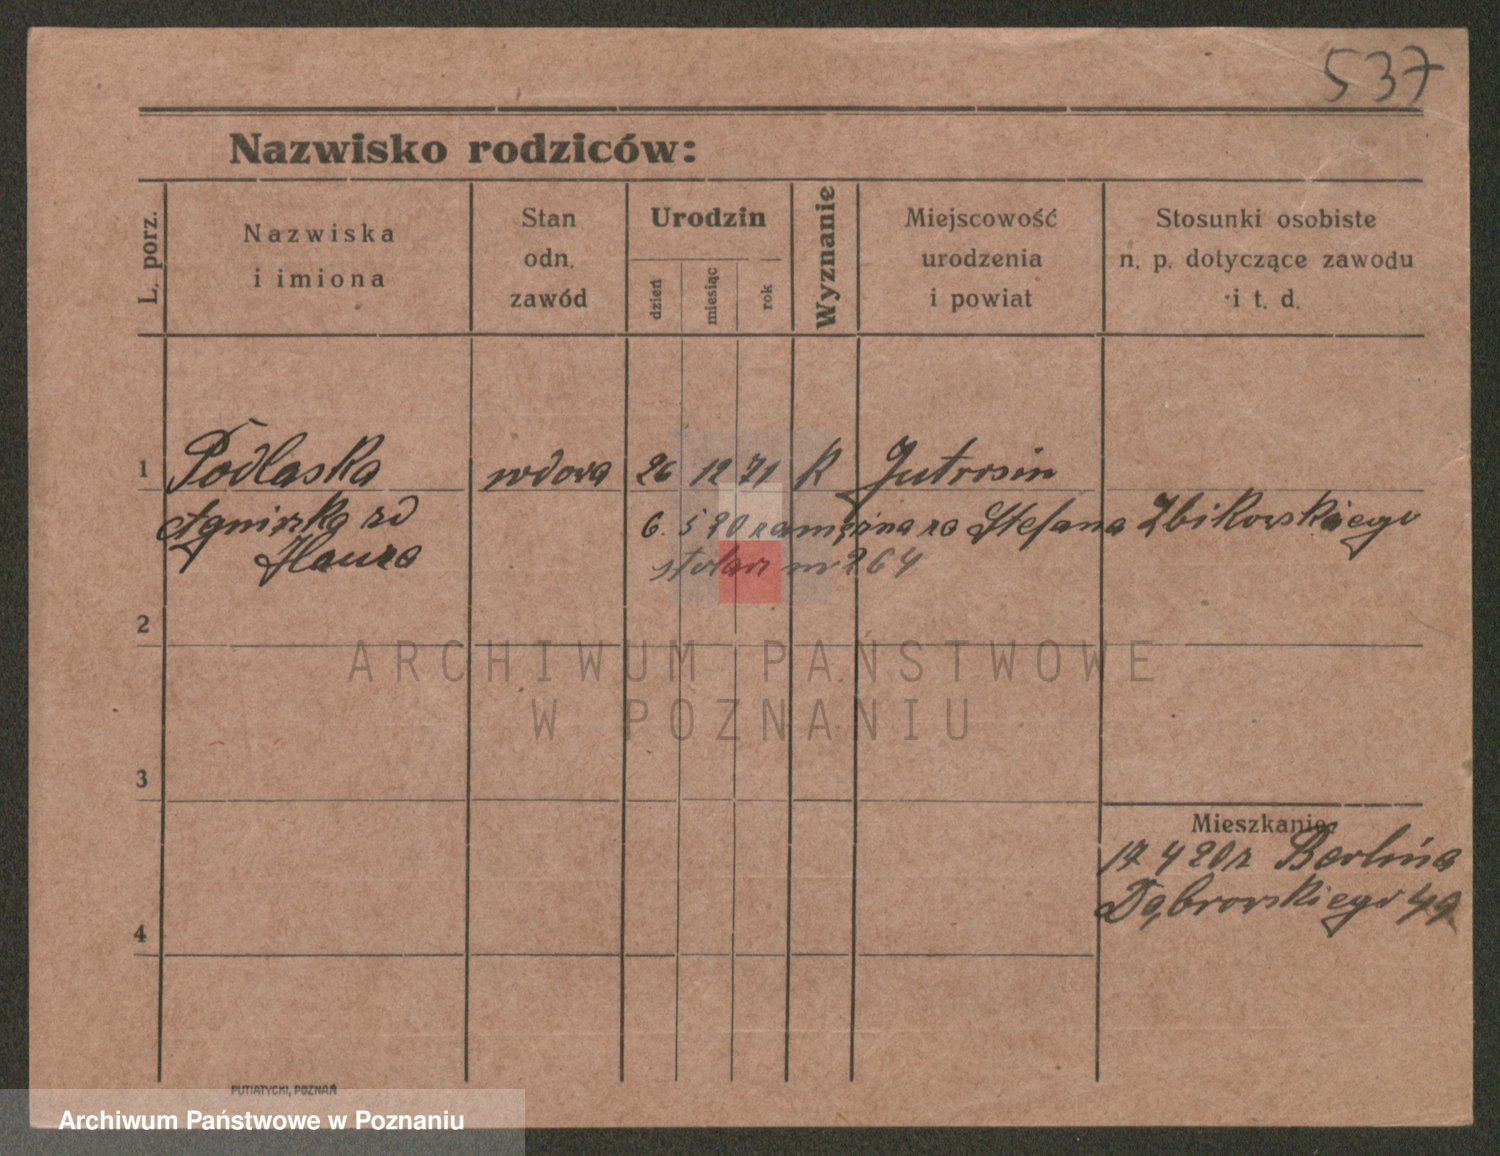 537
Nazwisko rodziców:
L. porz.
Nazwiska
i imiona
Stan
odn.
zawód
Urodzin
dzień
miesiąc
rok
Wyznanie
Miejscowość
urodzenia
i powiat
Stosunki osobiste
n. p. dotyczące zawodu
i t. d.
1 Podlaska wdowa 26 12 71 K Jutrosin
Agniszka zd 6. 5 20 zamężna za Stefana Zbikowskiego
stolarz nr 264
2
ARCHIWUM PAŃSTWOWE
W POZNANIU
3
Mieszkanie:
17 4 20 z Berlina
Dąbrowskiego 49
4
PUTIATYCKI, POZNAŃ
Archiwum Państwowe w Poznaniu